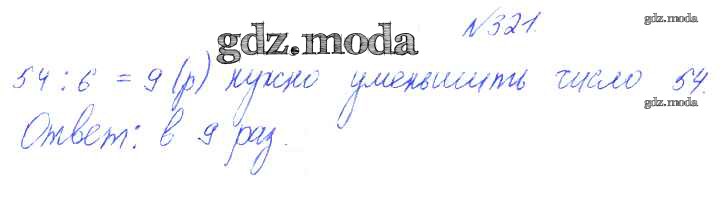 №321.
gdz.moda
gdz.moda
54 : 6 = 9 (р) нужно уменьшить число 54.
gdz.moda
Ответ: в 9 раз.